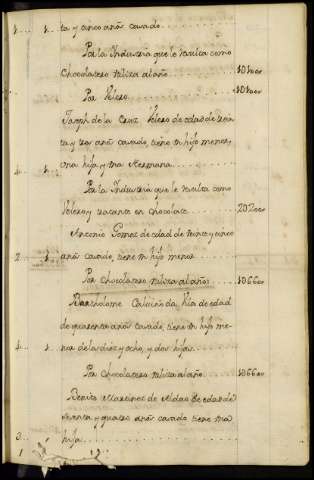 ta y cinco años casado
Por la Industria que le resulta como
Chocolatero utiliza al año
Por Velero
Joseph de la Cruz Velero de edad de trein
ta y tres años casado, tiene un hijo menor,
una hija y una Hermana
4
Por la Industria que le resulta como
Velero, y tratante en chocolate
Antonio Gomez de edad de treinta y cinco
2 años casado, tiene un hijo menor
Por Chocolatero utiliza al año
1066
Bartholome de edad
de quarenta años casado, tiene un hijo me
4 nor de los diez y ocho, y dos hijas
Por Chocolatero utiliza al año
1066
Benito Martinez de Aldas de edad de
treinta y quatro años casado tiene una
2 hija